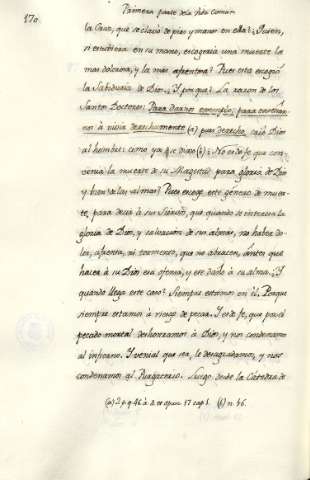 170.
Primera parte de la Vida Comun
la Cruz, que se clavó de pies y manos en ella? ¿Quien,
si estubiera en su mano, escogeria una muerte la
mas dolorosa, y la más afrentosa? Pues esta escogió
la Sabiduria de Dios. ¿Y por que? La razon de los
Santos Doctores: Para darnos exemplo, para enseñar-
nos à vivir derechamente (a) pues derecho, crió Dios
al hombre: como ya q.e dixe (b) ¿No es de fe que con-
venia la muerte de su Magestad para gloria de Dios
y bien de las almas? Pues escoge este género de muer-
te, para decir à sus siervos, que quando se interesa la
gloria de Dios, y salvacion de sus almas, no habrá do-
lor, afrenta, ni tormento, que no abracen, antes que
hacer à su Dios esa ofensa, y ese daño à su alma. ¿Y
quando llega este caso? Siempre estamos en él. Porque
siempre estamos à riesgo de pecar. Y es de fe, que por el
pecado mortal deshonramos à Dios, y nos condenamos
al infierno. Y venial que sea, le desagradamos, y nos
condenamos al Purgatorio. Luego desde la Cátedra de
(a) 3 p. q. 46. à 4. et opusc. 57 cap. 1. (b) n. 46.